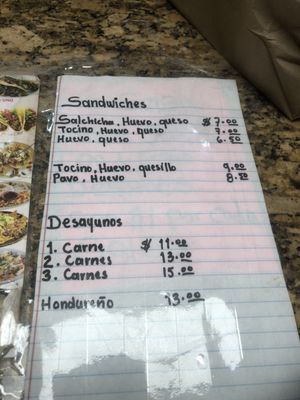 Sandwiches
Salchicha, Huevo, queso $ 7.00
Tocino, Huevo, queso 7.00
Huevo, queso 6.50
Tocino, Huevo, quesillo 9.00
Pavo, Huevo 8.50
Desayunos
1. Carne $ 11.00
2. Carnes 13.00
3. Carnes 15.00
Hondureño 13.00